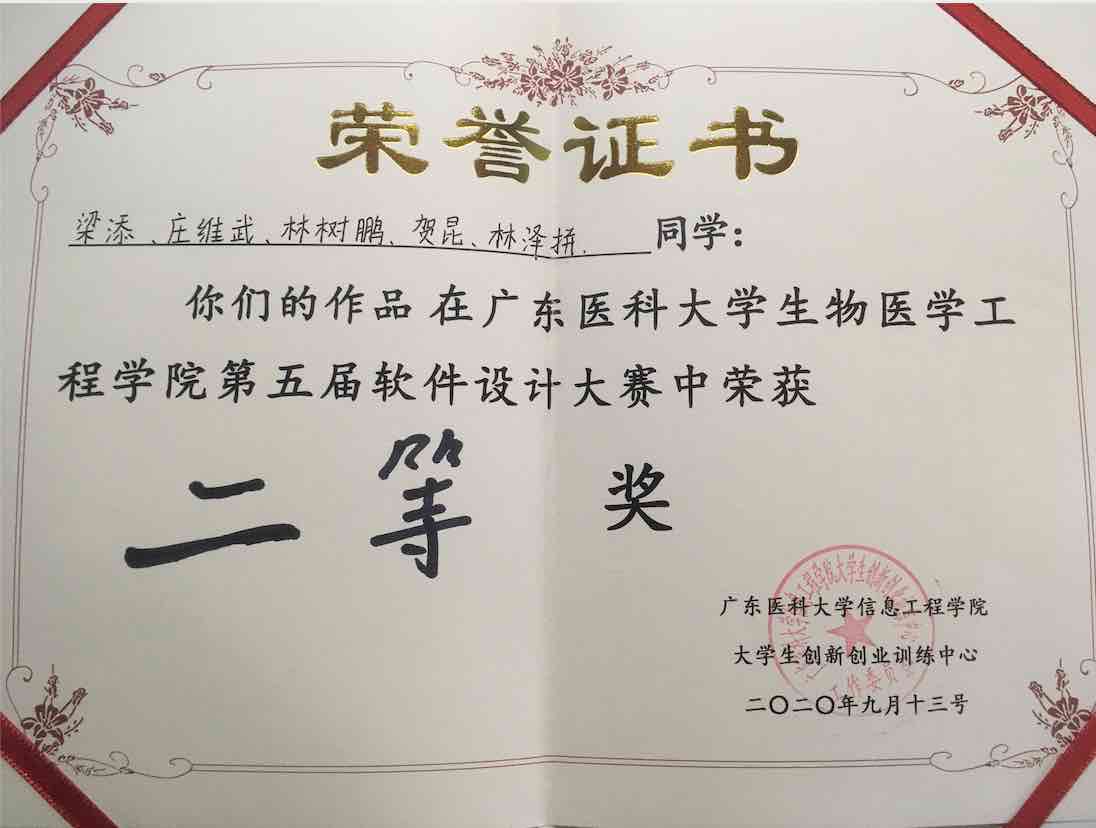 荣誉证书
梁添、庄维武、林树鹏、贺昆、林泽拼. 同学:
你们的作品在广东医科大学生物医学工
程学院第五届软件设计大赛中荣获
二等 奖
广东医科大学信息工程学院
大学生创新创业训练中心
二〇二〇年九月十三号